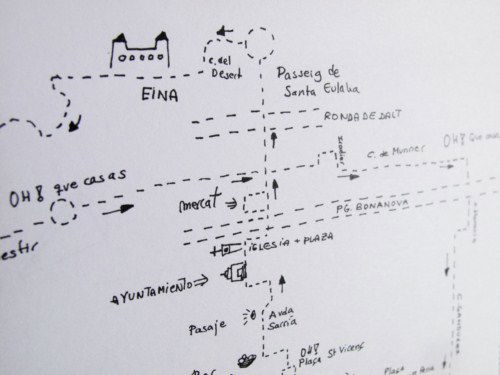 c. del
Desert
EINA
Passeig de
Santa Eulalia
RONDA DE DALT
C. de Munner
OH! Que casas
OH! que casas
mercat
PG. BONANOVA
IGLESIA + PLAZA
AYUNTAMIENTO
Pasaje
Avda
Sarria
OH!
Plaça St Vicenç
Plaça